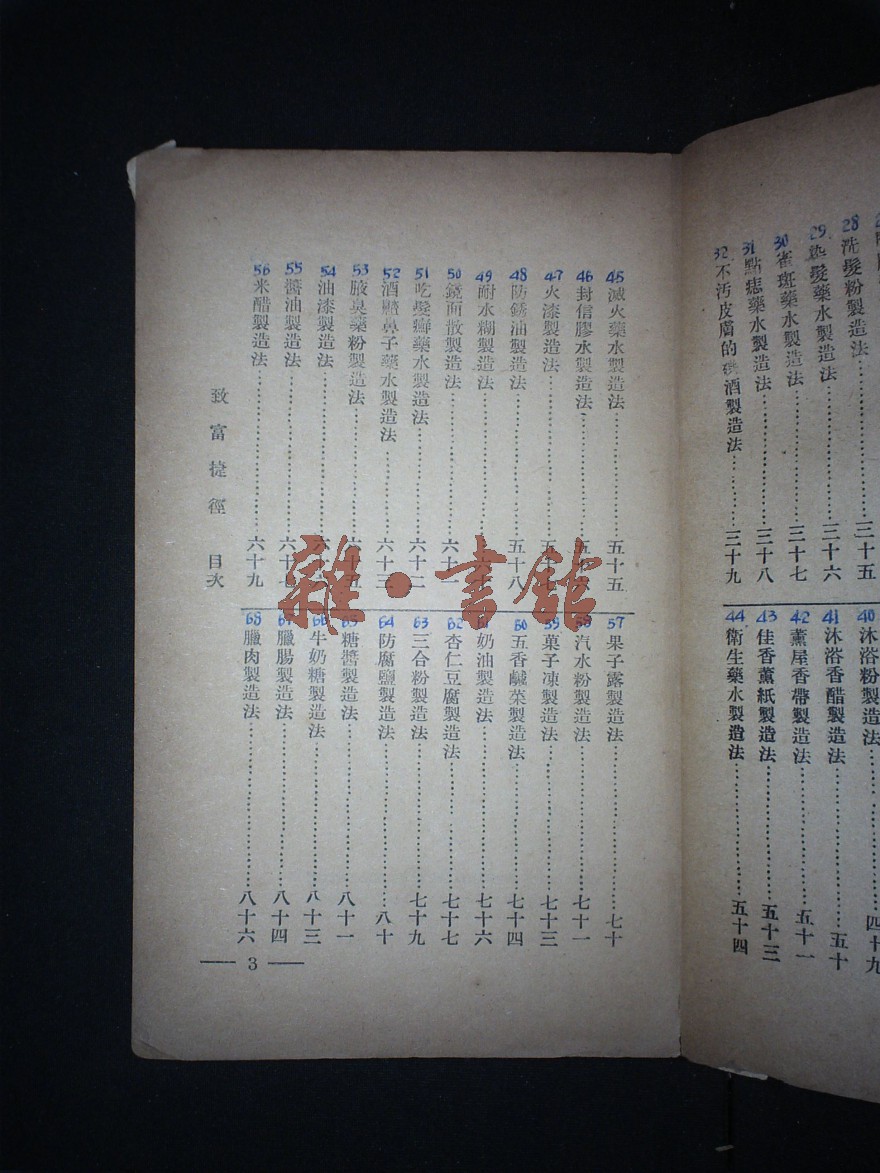 28 洗髮粉製造法 三十五
29 染髮藥水製造法 三十六
30 雀斑藥水製造法 三十七
31 點痣藥水製造法 三十八
32 不汚皮膚的 酒製造法 三十九
40 沐浴粉製造法 四十九
41 沐浴香醋製造法 五十
42 薰屋香帶製造法 五十一
43 佳香薰紙製造法 五十三
44 衛生藥水製造法 五十四
45 滅火藥水製造法 五十五
46 封信膠水製造法
47 火漆製造法
48 防銹油製造法 五十八
49 耐水糊製造法
50 鏡面散製造法 六十一
51 吃髮癬藥水製造法 六十二
52 酒齄鼻子藥水製造法 六十三
53 腋臭藥粉製造法 六十五
54 油漆製造法
55 醬油製造法 六十七
56 米醋製造法 六十九
57 果子露製造法 七十
58 汽水粉製造法 七十一
59 菓子凍製造法 七十三
60 五香鹹菜製造法 七十四
61 奶油製造法 七十六
62 杏仁豆腐製造法 七十七
63 三合粉製造法 七十九
64 防腐鹽製造法 八十
65 糖醬製造法 八十一
66 牛奶糖製造法 八十三
67 臘腸製造法 八十四
68 臘肉製造法 八十六
致富捷徑 目次
3
雜·書館